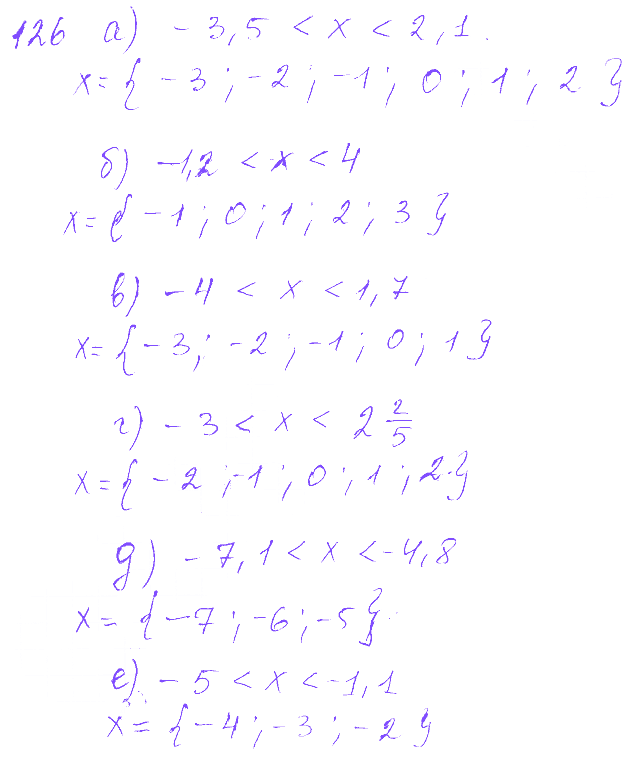 126 а) - 3,5 < x < 2,1.
x = { - 3 ; - 2 ; - 1 ; 0 ; 1 ; 2 }
б) -1,2 < x < 4
x = { - 1 ; 0 ; 1 ; 2 ; 3 }
в) - 4 < x < 1,7
x = { - 3 ; - 2 ; - 1 ; 0 ; 1 }
г) - 3 < x < 2 2/5
x = { - 2 ; -1 ; 0 ; 1 ; 2 }
д) - 7,1 < x < -4,8
x = { - 7 ; - 6 ; - 5 }
е) - 5 < x < -1,1
x = { - 4 ; - 3 ; - 2 }